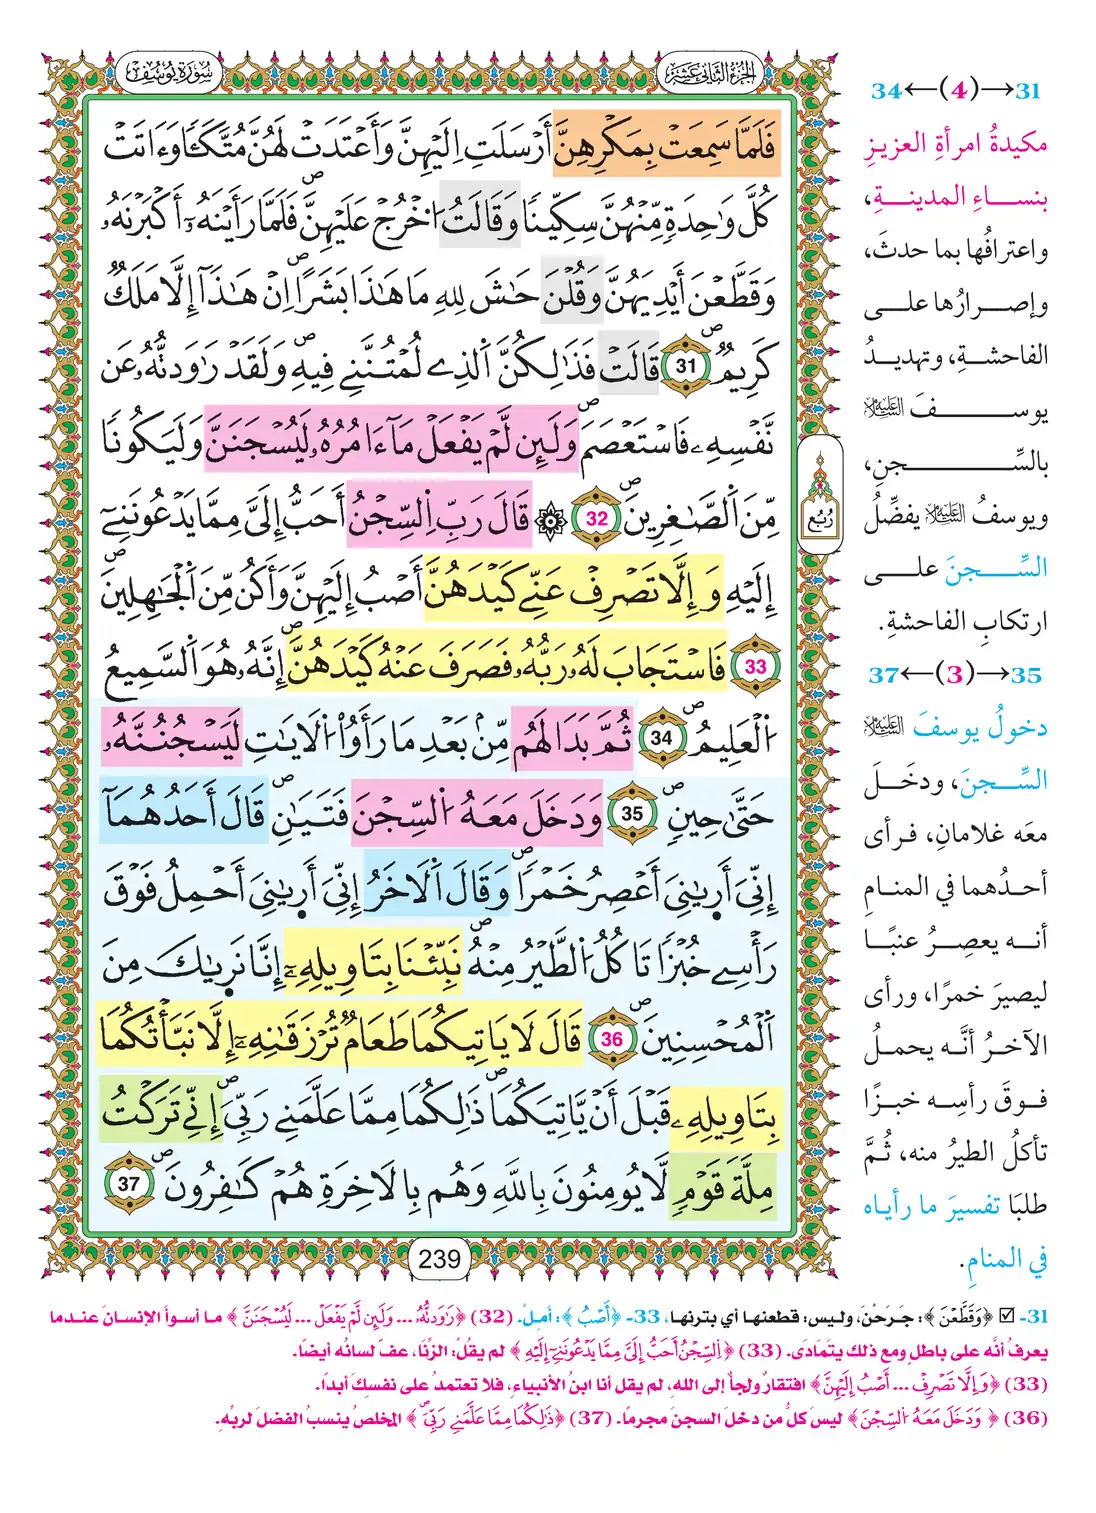 سُورَةُ يُوسُفَ
الجُزْءُ الثَّانِي عَشَرَ
فَلَمَّا سَمِعَتْ بِمَكْرِهِنَّ أَرْسَلَتِ اِلَيْهِنَّ وَأَعْتَدَتْ لَهُنَّ مُتَّكَـٔٗا وَءَاتَتْ
كُلَّ وَٰحِدَةٖ مِّنْهُنَّ سِكِّينٗا وَقَالَتُ اُ۟خْرُجْ عَلَيْهِنَّۖ فَلَمَّا رَأَيْنَهُۥٓ أَكْبَرْنَهُۥ
وَقَطَّعْنَ أَيْدِيَهُنَّ وَقُلْنَ حَٰشَ لِلهِ مَا هَٰذَا بَشَراًۖ اِنْ هَٰذَآ إِلَّا مَلَكٞ
كَرِيمٞۖ 31 قَالَتْ فَذَٰلِكُنَّ اَ۬لذِے لُمْتُنَّنِے فِيهِۖ وَلَقَدْ رَٰوَدتُّهُۥ عَن
نَّفْسِهِۦ فَاسْتَعْصَمَۖ وَلَئِن لَّمْ يَفْعَلْ مَآ ءَامُرُهُۥ لَيُسْجَنَنَّ وَلَيَكُوناٗ
مِّنَ اَ۬لصَّٰغِرِينَۖ 32 ۞ قَالَ رَبِّ اِ۬لسِّجْنُ أَحَبُّ إِلَيَّ مِمَّا يَدْعُونَنِےٓ
إِلَيْهِ وَإِلَّا تَصْرِفْ عَنِّے كَيْدَهُنَّ أَصْبُ إِلَيْهِنَّ وَأَكُن مِّنَ اَ۬لْجَٰهِلِينَۖ
33 فَاسْتَجَابَ لَهُۥ رَبُّهُۥ فَصَرَفَ عَنْهُ كَيْدَهُنَّۖ إِنَّهُۥ هُوَ اَ۬لسَّمِيعُ
اُ۬لْعَلِيمُۖ 34 ثُمَّ بَدَا لَهُم مِّنۢ بَعْدِ مَا رَأَوُاْ اُ۬لَايَٰتِ لَيَسْجُنُنَّهُۥ
حَتَّىٰ حِينٖۖ 35 وَدَخَلَ مَعَهُ اُ۬لسِّجْنَ فَتَيَٰنِۖ قَالَ أَحَدُهُمَآ
إِنِّيَ أَر۪يٰنِيَ أَعْصِرُ خَمْراٗۖ وَقَالَ اَ۬لَاخَرُ إِنِّيَ أَر۪يٰنِيَ أَحْمِلُ فَوْقَ
رَأْسِے خُبْزاٗ تَاكُلُ اُ۬لطَّيْرُ مِنْهُۖ نَبِّئْنَا بِتَاوِيلِهِۦٓ إِنَّا نَر۪يٰكَ مِنَ
اَ۬لْمُحْسِنِينَۖ 36 قَالَ لَا يَاتِيكُمَا طَعَامٞ تُرْزَقَٰنِهِۦٓ إِلَّا نَبَّأْتُكُمَا
بِتَاوِيلِهِۦ قَبْلَ أَنْ يَّاتِيَكُمَاۖ ذَٰلِكُمَا مِمَّا عَلَّمَنِے رَبِّيَۖ إِنِّے تَرَكْتُ
مِلَّةَ قَوْمٖ لَّا يُومِنُونَ بِاللَّهِ وَهُم بِالَاخِرَةِ هُمْ كَٰفِرُونَۖ 37
رُبُع
239
31→(4)←34
مكيدةُ امرأةِ العزيزِ
بنساءِ المدينةِ،
واعترافُها بما حدثَ،
وإصرارُها على
الفاحشةِ، وتهديدُ
يوسفَ عليه السلام
بالسِّجنِ،
ويوسفُ عليه السلام يفضِّلُ
السِّجنَ على
ارتكابِ الفاحشةِ.
35→(3)←37
دخولُ يوسفَ عليه السلام
السِّجنَ، ودخَلَ
معَه غلامانِ، فرأى
أحدُهما في المنامِ
أنه يعصِرُ عنبًا
ليصيرَ خمرًا، ورأى
الآخرُ أنَّه يحملُ
فوقَ رأسِه خبزًا
تأكلُ الطيرُ منه، ثُمَّ
طلبَا تفسيرَ ما رأياه
في المنامِ.
31- ☑ ﴿وَقَطَّعْنَ﴾: جَرَحْنَ، وليس: قطعنها أي بترنها، 33- ﴿أَصْبُ﴾: أمِلْ. (32) ﴿رَٰوَدتُّهُۥ ... وَلَئِن لَّمْ يَفْعَلْ ... لَيُسْجَنَنَّ﴾ ما أسوأ الإنسانَ عندما
يعرفُ أنَّه على باطلٍ ومع ذلك يتمَادَى. (33) ﴿اِ۬لسِّجْنُ أَحَبُّ إِلَيَّ مِمَّا يَدْعُونَنِےٓ إِلَيْهِ﴾ لم يقلْ: الزِّنَا، عفَّ لسانُه أيضًا.
(33) ﴿وَإِلَّا تَصْرِفْ ... أَصْبُ إِلَيْهِنَّ﴾ افتقارٌ ولجأٌ إلى الله، لم يقل أنا ابنُ الأنبياءِ، فلا تعتمدْ على نفسِكَ أبدًا.
(36) ﴿وَدَخَلَ مَعَهُ اُ۬لسِّجْنَ﴾ ليسَ كلُّ من دخلَ السجنَ مجرمًا. (37) ﴿ذَٰلِكُمَا مِمَّا عَلَّمَنِے رَبِّيَۖ﴾ المخلصُ ينسبُ الفضلَ لربِّه.